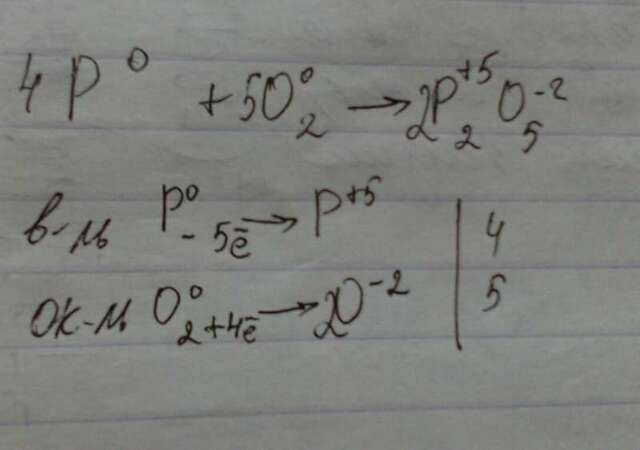 4P⁰ + 5O₂⁰ → 2P₂⁺⁵O₅⁻²
в-ль P⁰ - 5ē → P⁺⁵ | 4
ок-ль O₂⁰ + 4ē → 2O⁻² | 5